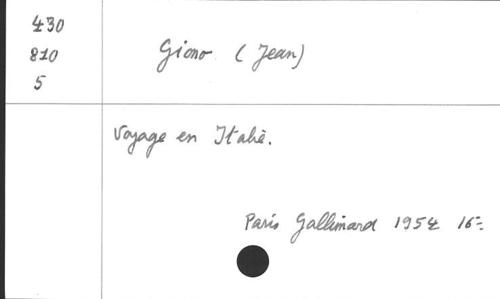 430
810
5
Giono (Jean)
Voyage en Italie.
Paris Gallimard 1954 16=